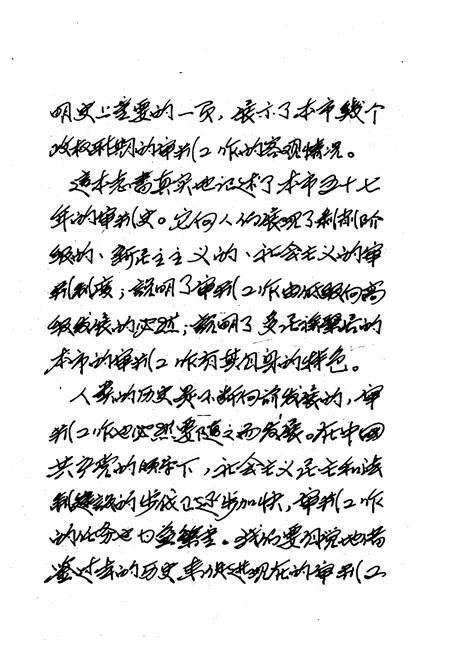 明史上重要的一页，展示了本市几个
政权时期的审判工作的客观情况。
这本志书真实地记述了本市五十七
年的审判史。它向人们展现了剥削阶
级的、新民主主义的、社会主义的审
判制度；说明了审判工作由低级向高
级发展的必然；说明了多民族聚居的
本市的审判工作有其自身的特色。
人类的历史是不断向前发展的，审
判工作也必然要随之而发展。在中国
共产党的领导下，社会主义民主和法
制建设的步伐已逐步加快，审判工作
的任务也日益繁重。我们要很好地借
鉴过去的历史来促进现在的审判工